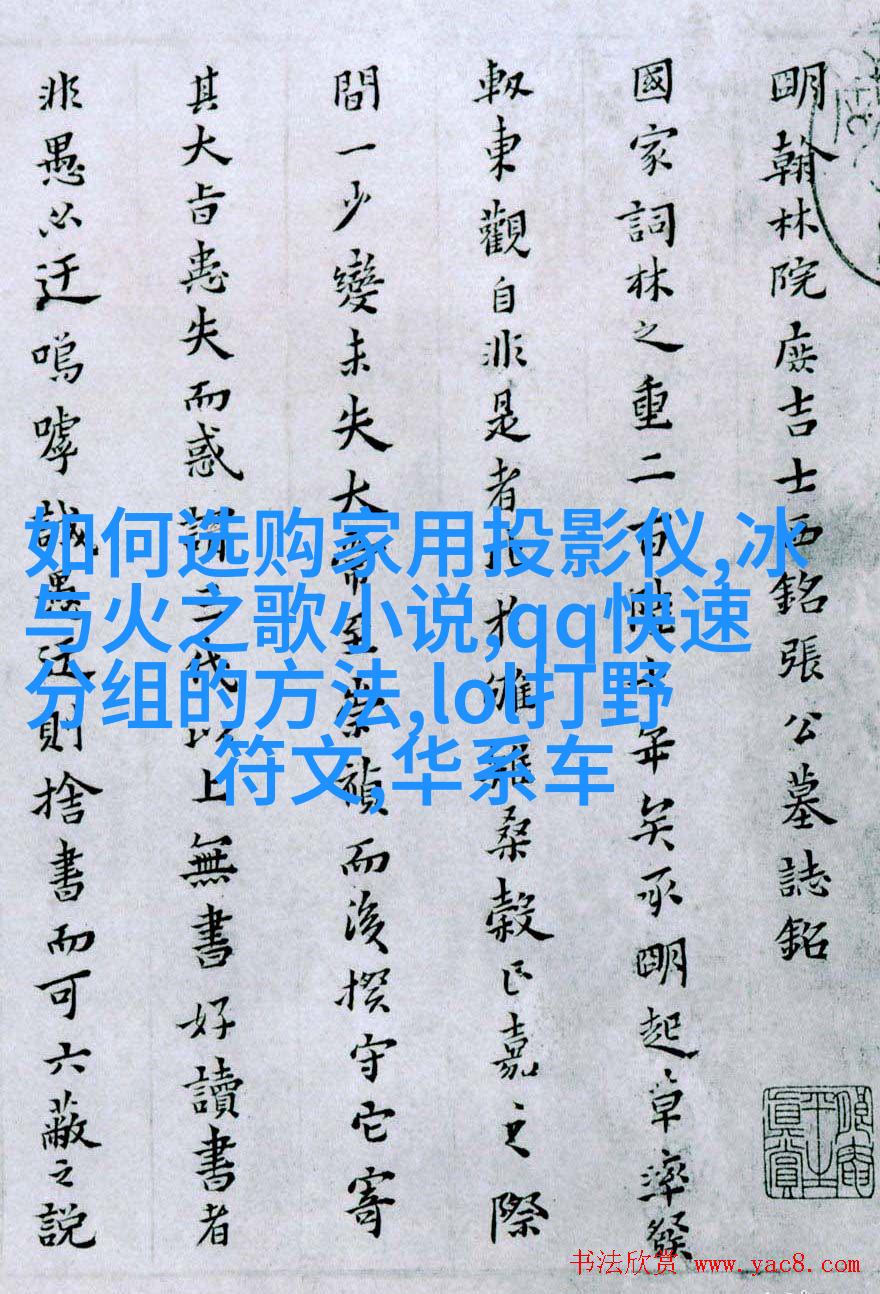 明翰林院庶吉士西銘張公墓誌銘
國家詞林之重二百年矣承明起草
軔東觀自非是者於雍桑穀正嘉之際
間一少變未失大常至崇禎而後揆守它寄
其大旨患失而惑三代以上無書好讀書者
非愚必迂嗚嘑誠愚迂則捨書而可六蔽之說
如何选购家用投影仪,冰
与火之歌小说,qq快速
分组的方法,lol打野
符文,华系车
书法欣赏 www.yac8.com